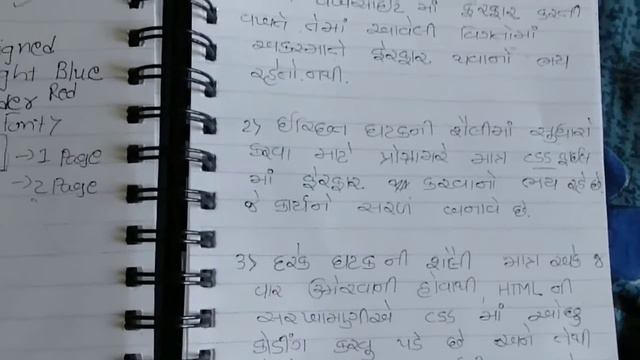 igned
ght Blue
der Red
1 Page
2 Page
માં ફેરફાર કરતી
વખતે તેમાં આવેલી વિગતોમાં
અકસ્માતે ફેરફાર થવાનો ભય
રહેતો નથી.
2> ઘટકની શૈલીમાં સુધારો
કરવા માટે પ્રોગ્રામરે માત્ર CSS
માં ફેરફાર કરવાનો રહે છે
જે કાર્યને સરળ બનાવે છે.
3> દરેક ઘટક ની શૈલી માત્ર એક જ
વાર ઉમેરવાની હોવાથી HTML ની
સરખામણીએ CSS માં ઓછુ
કોડીંગ કરવુ પડે છે અને તેથી